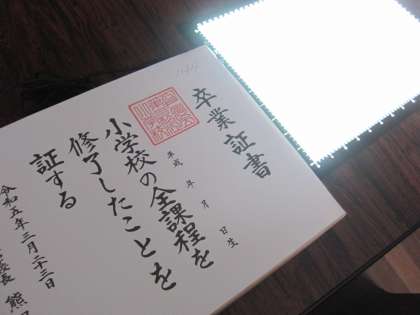 卒業証書
平成 年 月 日生
小学校の全課程を
修了したことを
証する
令和五年三月二十三日